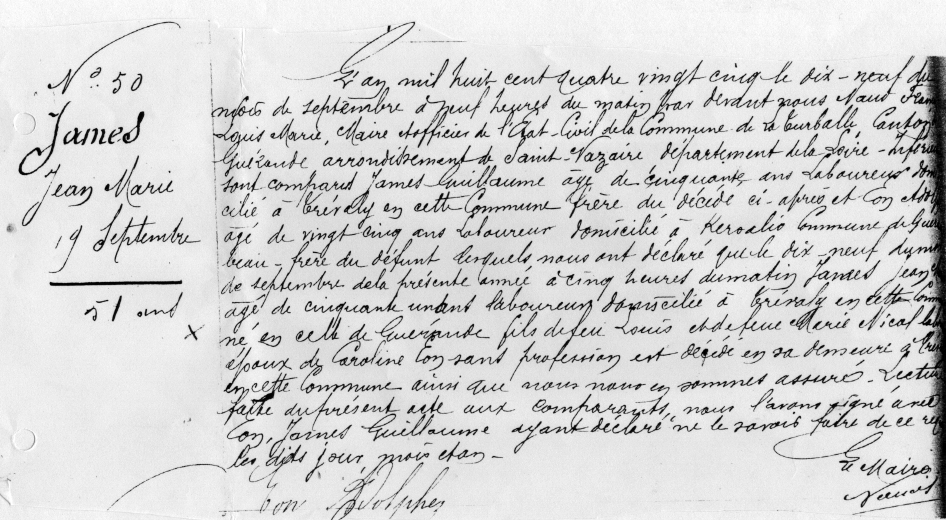 N.° 50
James
Jean Marie
19 Septembre
51 ans
L'an mil huit cent quatre vingt cinq le dix-neuf du
mois de septembre à neuf heures du matin par devant nous
Louis Marie, Maire et officier de l'Etat-Civil de la Commune de la Turballe, Canton
Guérande arrondissement de Saint-Nazaire département de la Loire-Inférieu
sont comparus James Guillaume âgé de cinquante ans Laboureur dom
cilié à Trévaly en cette Commune frère du décédé ci-après et Eon Adol
âgé de vingt cinq ans Laboureur domicilié à Commune de Gué
beau-frère du défunt lesquels nous ont déclaré que le dix-neuf du moi
de septembre de la présente année à cinq heures du matin James Jean
âgé de cinquante un ans laboureur domicilié à Trévaly en cette Com
né en celle de Guérande fils de feu Louis et de feue Marie Nicol
époux de Caroline Eon sans profession est décédé en sa demeure à Tré
en cette Commune ainsi que nous nous en sommes assuré. Lecture
faite du présent acte aux comparants, nous l'avons signé avec
Eon, James Guillaume ayant déclaré ne le savoir faire de ce re
les dits jour, mois et an.
Eon Adolphe
Le Maire